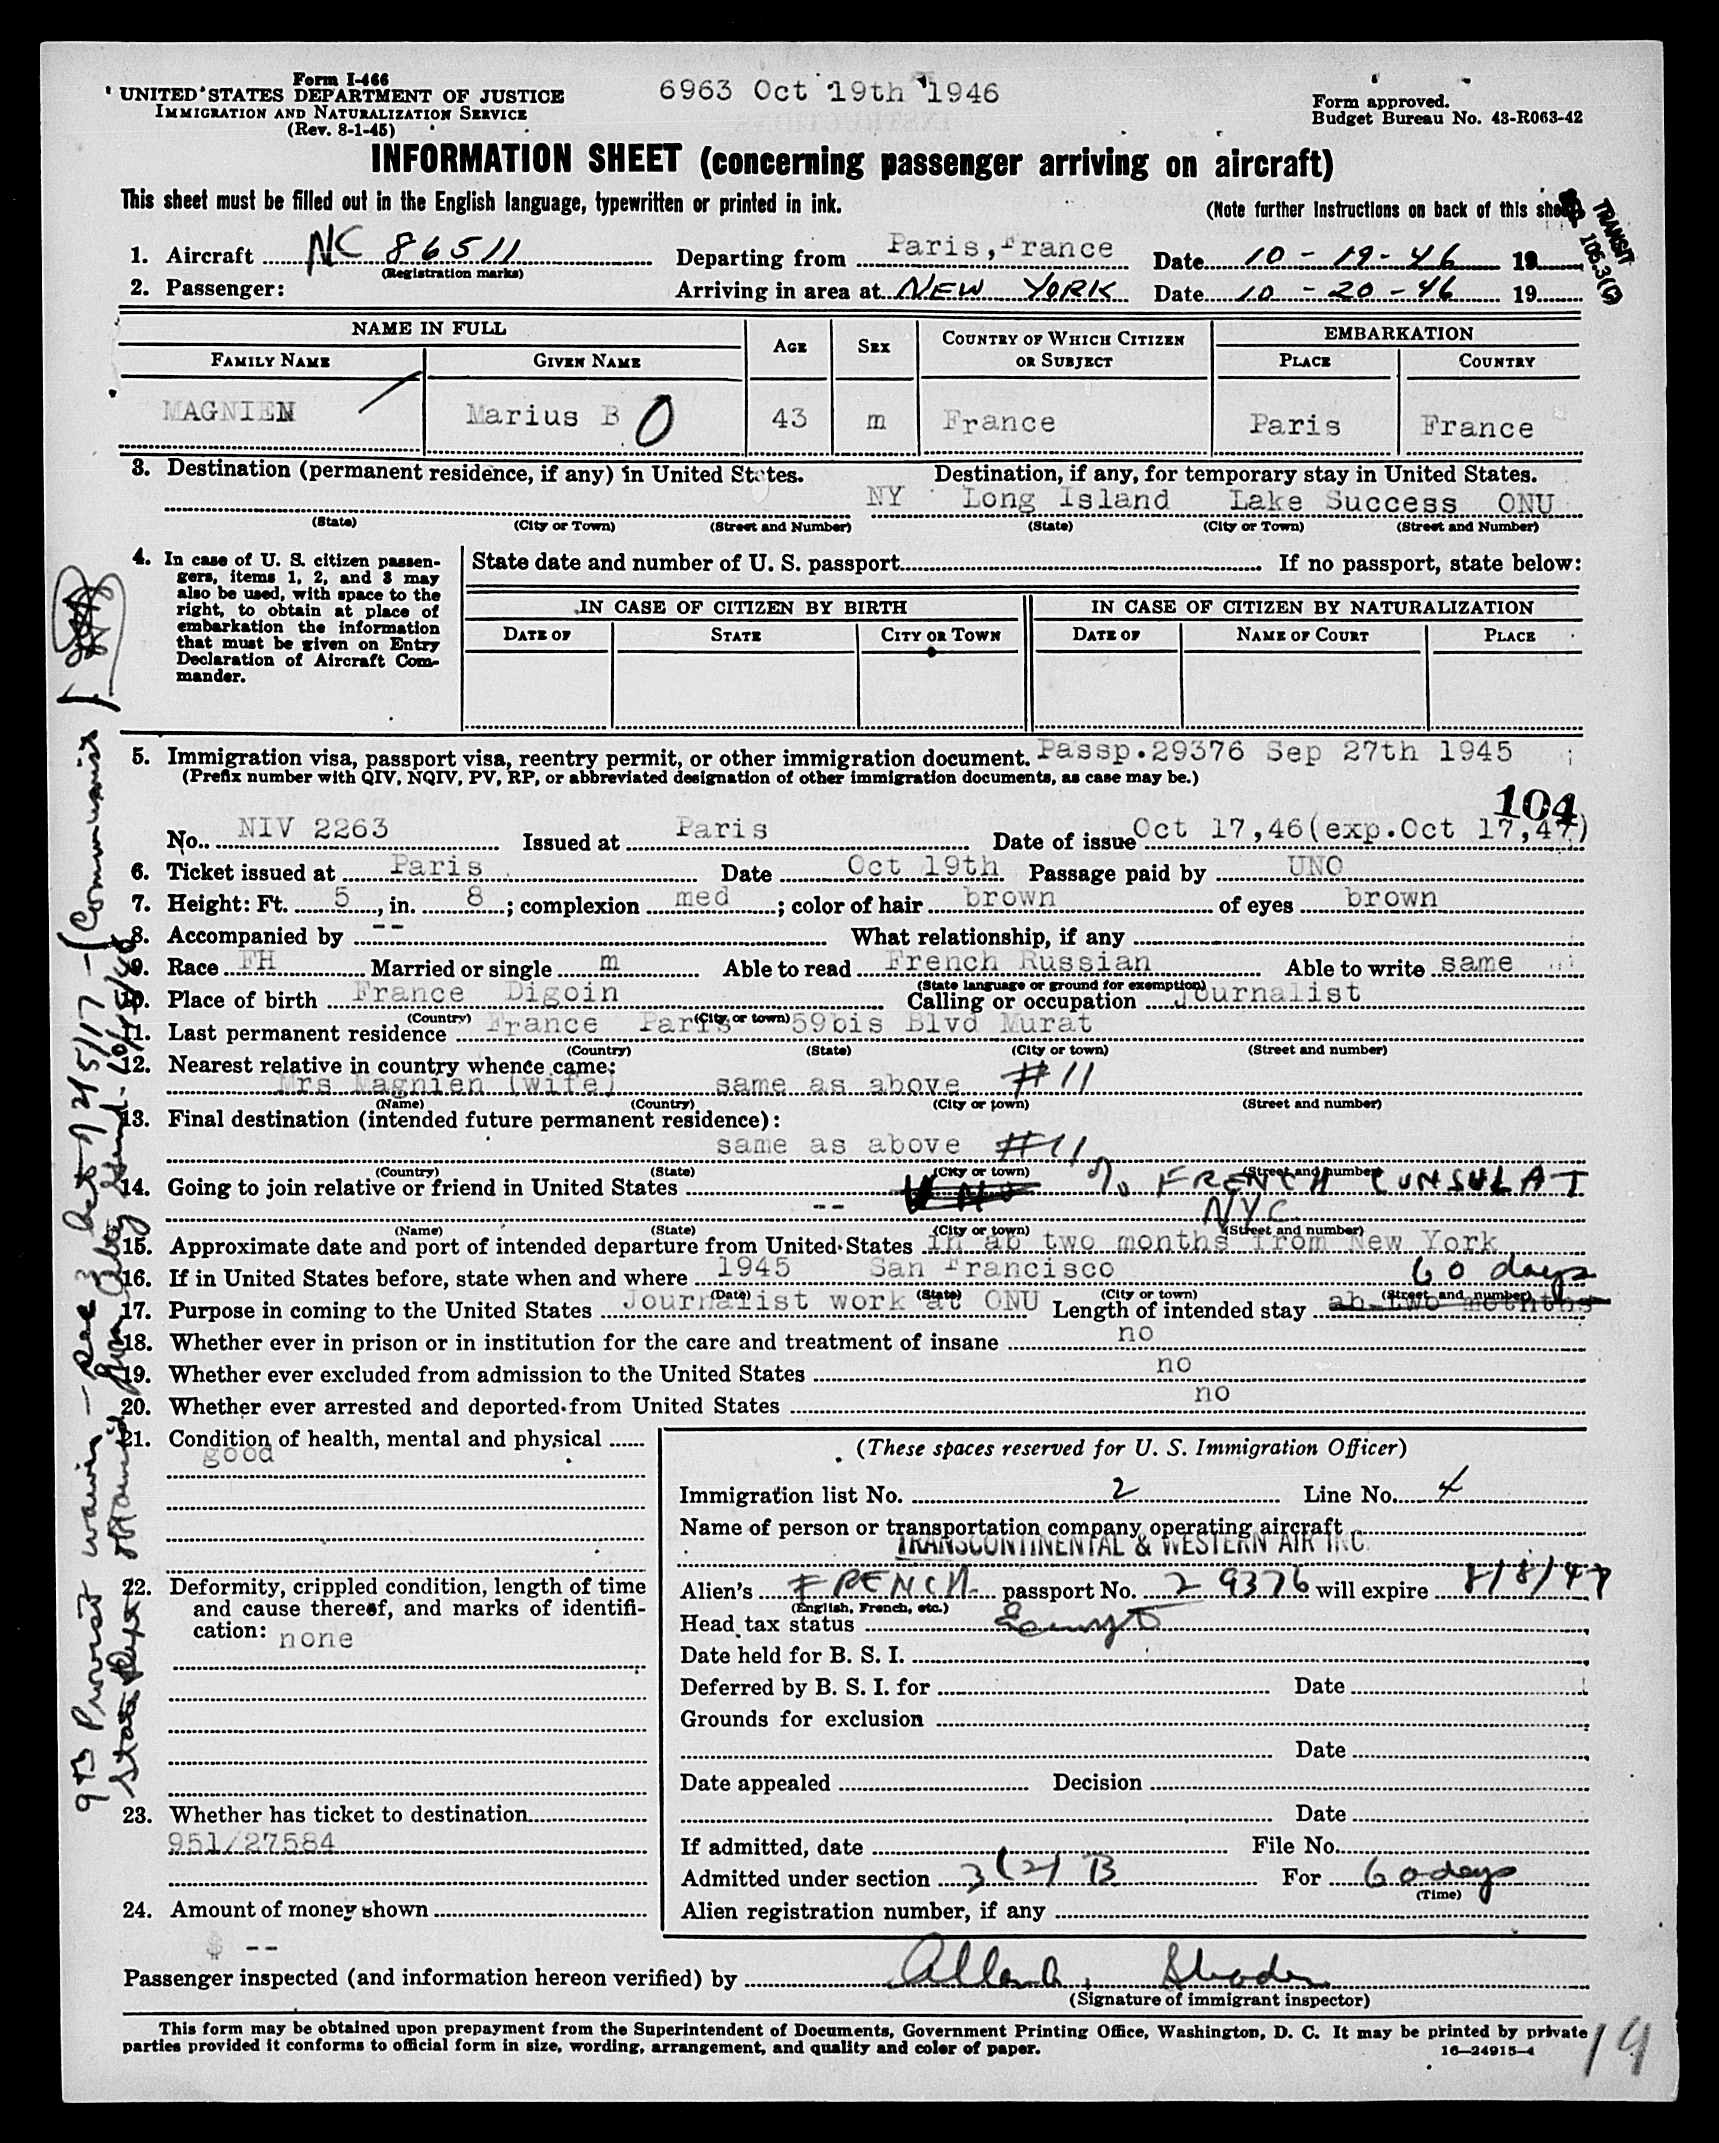 Form I-466
UNITED STATES DEPARTMENT OF JUSTICE
IMMIGRATION AND NATURALIZATION SERVICE
(Rev. 8-1-45)
6963 Oct 19th 1946
Form approved.
Budget Bureau No. 43-R063-42
INFORMATION SHEET (concerning passenger arriving on aircraft)
This sheet must be filled out in the English language, typewritten or printed in ink.
(Note further instructions on back of this sheet)
TRANSIT
105.3(G)
1. Aircraft NC 86511 Departing from Paris, France Date 10-19-46 19
(Registration marks)
2. Passenger: Arriving in area at NEW YORK Date 10-20-46 19
NAME IN FULL AGE SEX COUNTRY OF WHICH CITIZEN OR SUBJECT EMBARKATION
FAMILY NAME GIVEN NAME PLACE COUNTRY
MAGNIEN Marius B O 43 m France Paris France
3. Destination (permanent residence, if any) in United States. Destination, if any, for temporary stay in United States.
NY Long Island Lake Success ONU
(State) (City or Town) (Street and Number) (State) (City or Town) (Street and Number)
4. In case of U. S. citizen passengers, items 1, 2, and 3 may also be used, with space to the right, to obtain at place of embarkation the information that must be given on Entry Declaration of Aircraft Commander.
State date and number of U. S. passport If no passport, state below:
IN CASE OF CITIZEN BY BIRTH IN CASE OF CITIZEN BY NATURALIZATION
DATE OF STATE CITY OR TOWN DATE OF NAME OF COURT PLACE
5. Immigration visa, passport visa, reentry permit, or other immigration document. Passp.29376 Sep 27th 1945
(Prefix number with QIV, NQIV, PV, RP, or abbreviated designation of other immigration documents, as case may be.)
104
No. NIV 2263 Issued at Paris Date of issue Oct 17,46(exp.Oct 17,47)
6. Ticket issued at Paris Date Oct 19th Passage paid by UNO
7. Height: Ft. 5, in. 8; complexion med; color of hair brown of eyes brown
8. Accompanied by -- What relationship, if any
9. Race FH Married or single m Able to read French Russian Able to write same
(State language or ground for exemption)
10. Place of birth France Digoin Calling or occupation journalist
(Country) (City or town)
11. Last permanent residence France Paris 59bis Blvd Murat
(Country) (State) (City or town) (Street and number)
12. Nearest relative in country whence came:
Mrs Magnien (wife) same as above #11
(Name) (Country) (City or town) (Street and number)
13. Final destination (intended future permanent residence):
same as above #11
(Country) (State) (City or town) (Street and number)
14. Going to join relative or friend in United States UNO % FRENCH CONSULAT
-- NYC
(Name) (State) (City or town) (Street and number)
15. Approximate date and port of intended departure from United States in ab two months from New York
16. If in United States before, state when and where 1945 San Francisco
(Date) (State) (City or town) (Street and number)
60 days
17. Purpose in coming to the United States Journalist work at ONU Length of intended stay ab two months
18. Whether ever in prison or in institution for the care and treatment of insane no
19. Whether ever excluded from admission to the United States no
20. Whether ever arrested and deported from United States no
21. Condition of health, mental and physical
good
22. Deformity, crippled condition, length of time and cause thereof, and marks of identification: none
23. Whether has ticket to destination
951/27584
24. Amount of money shown
$ --
(These spaces reserved for U. S. Immigration Officer)
Immigration list No. 2 Line No. 4
Name of person or transportation company operating aircraft
TRANSCONTINENTAL & WESTERN AIR INC.
Alien's FRENCH passport No. 29376 will expire 8/8/47
(English, French, etc.)
Head tax status Exempt
Date held for B. S. I.
Deferred by B. S. I. for Date
Grounds for exclusion
Date
Date appealed Decision
Date
If admitted, date File No.
Admitted under section 3(2) B For 60 days
(Time)
Alien registration number, if any
Passenger inspected (and information hereon verified) by
(Signature of immigrant inspector)
This form may be obtained upon prepayment from the Superintendent of Documents, Government Printing Office, Washington, D. C. It may be printed by private
parties provided it conforms to official form in size, wording, arrangement, and quality and color of paper.
16—24915-4
19
9th Proviso waiver - Sec 3 Act of 2/5/17 - (Communist)
State Dept